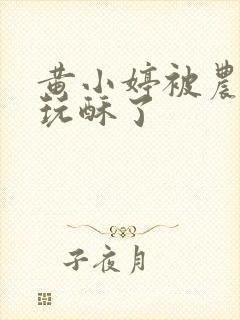 黄小婷被農
玩酥了
子夜月